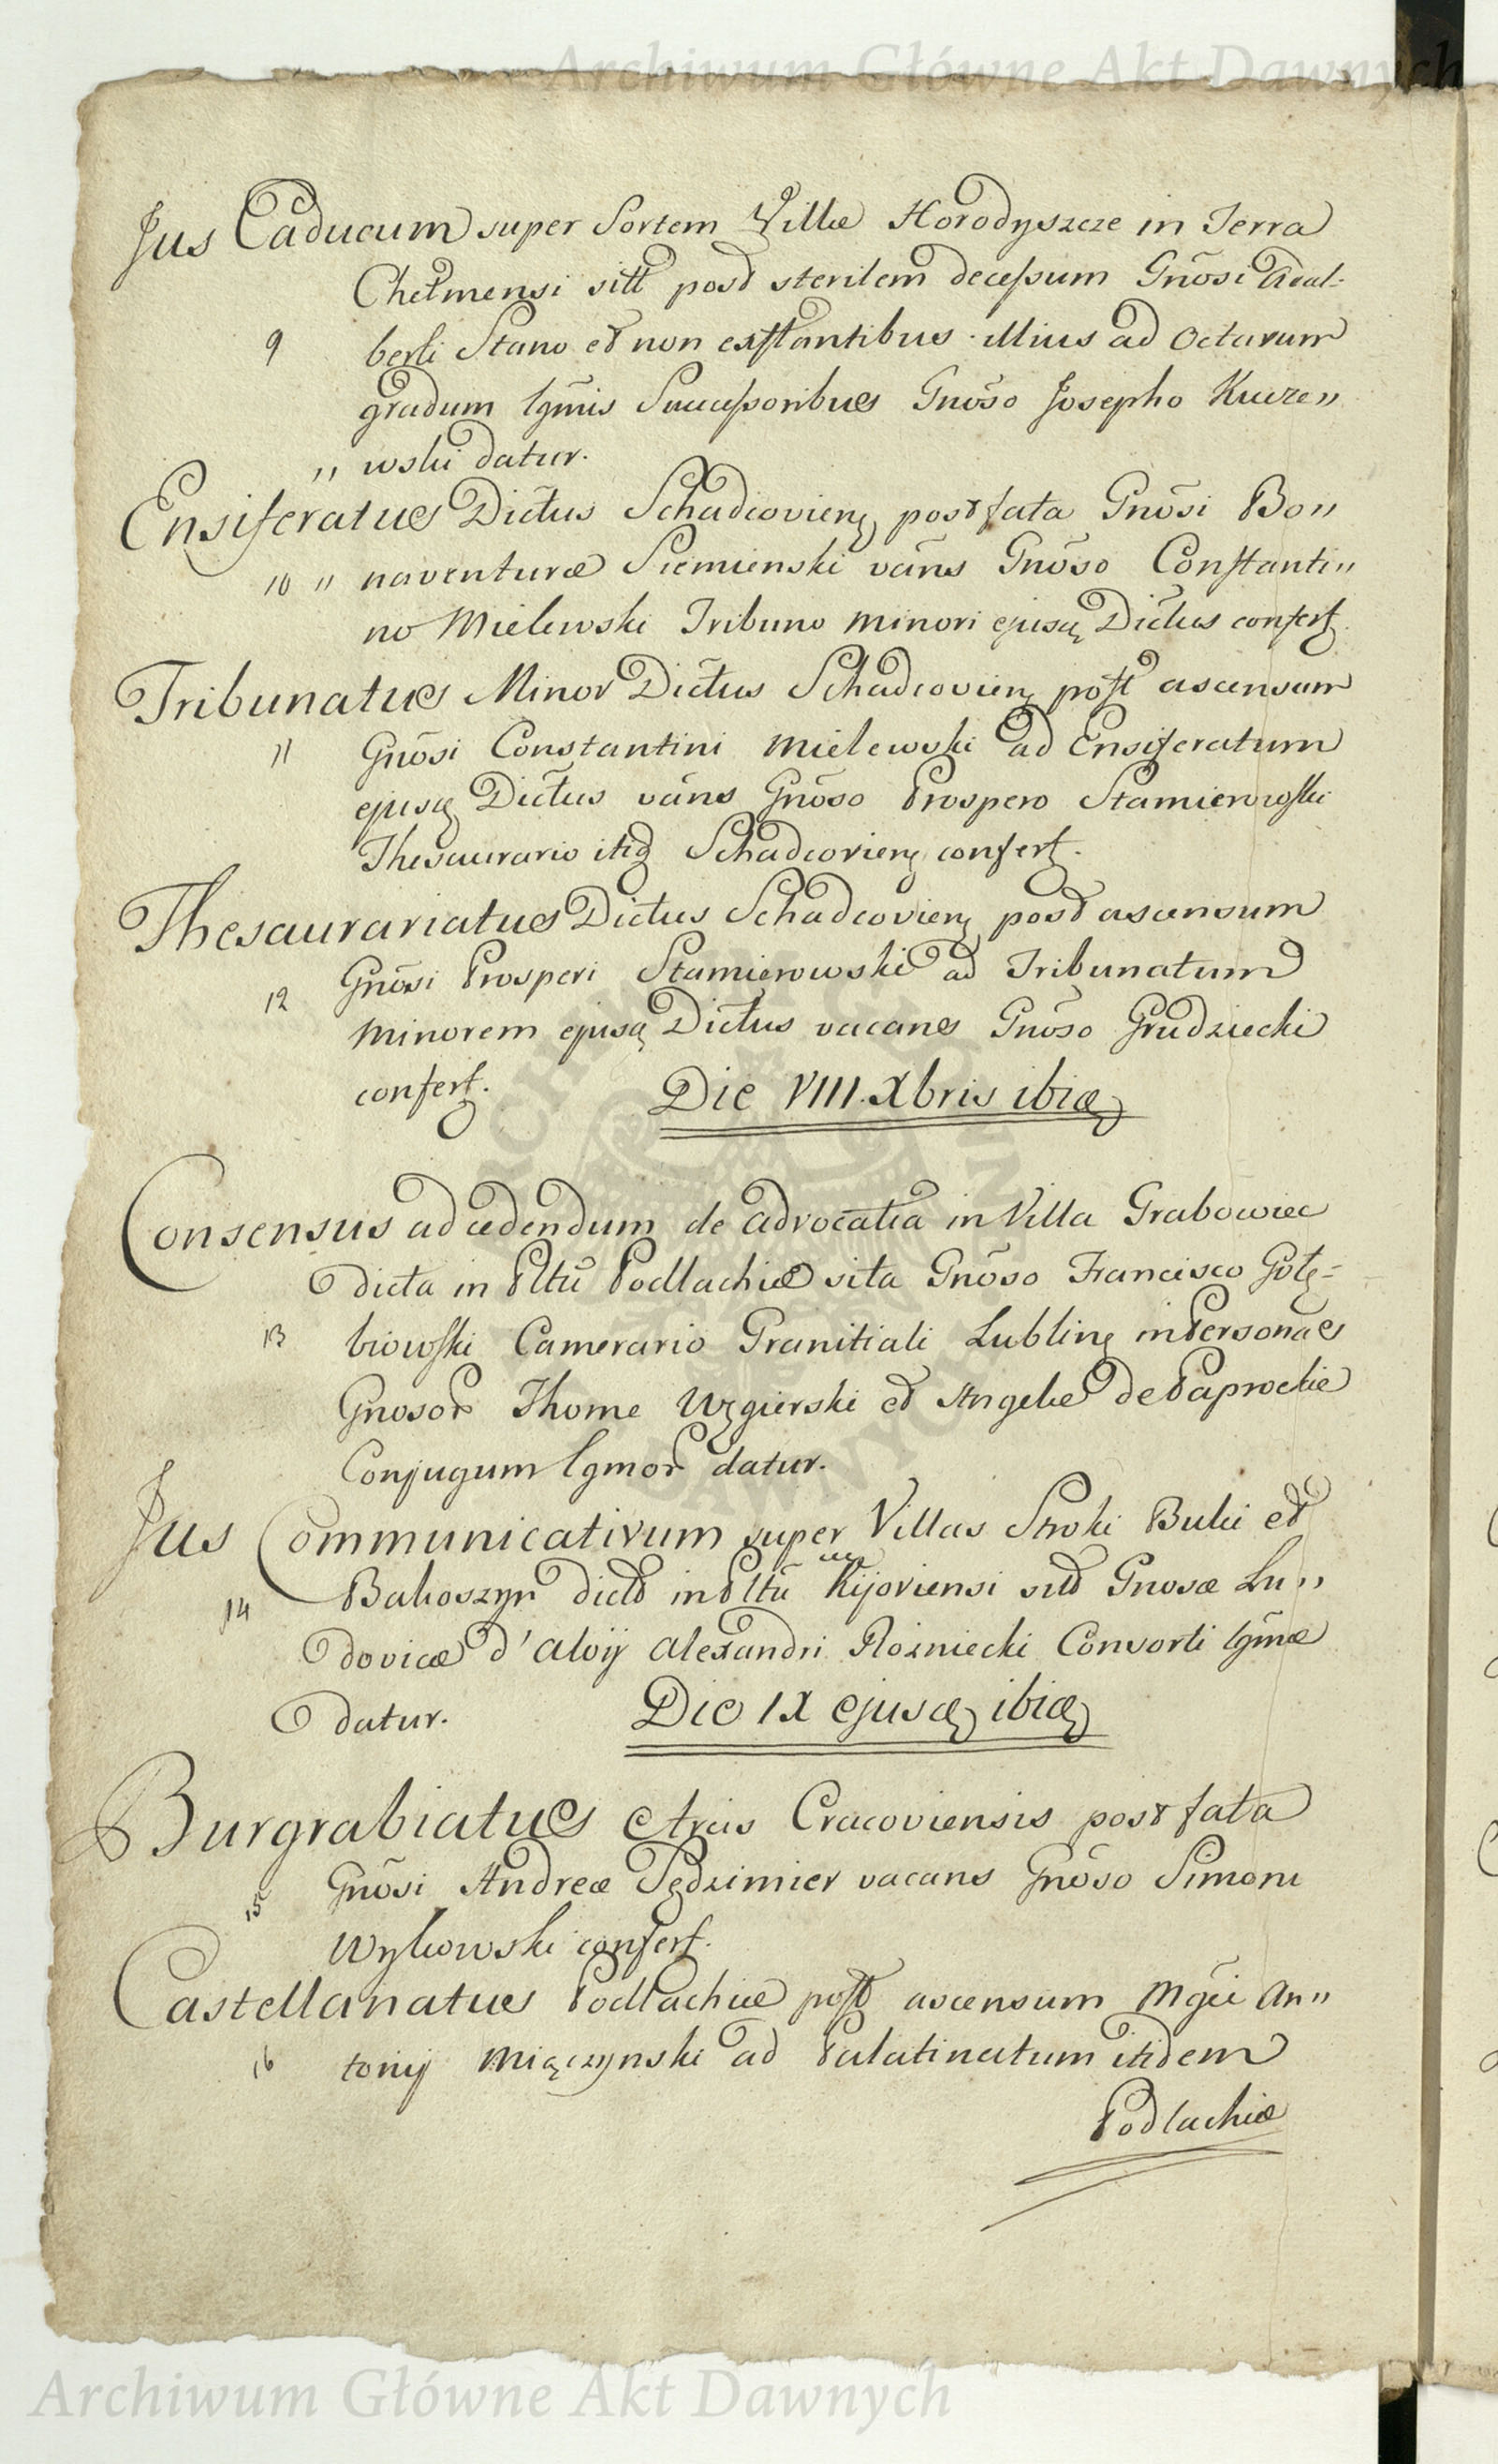 Archiwum Główne Akt Dawnych
Jus Caducum super Sortem Villæ Horodyszcze in Terra
Chełmensi sitt post sterilem decessum Gnōsi Adal-
9 berti Stano et non exstantibus illius ad Octavum
gradum lgm̄is Successoribus Gnōso Josepho Kurze„
„ wski datur.
Ensiferatus Dictus Schadcovienę post fata Gnōsi Bo„
10 „ naventuræ Siemienski vāns Gnōso Constanti„
no Mielewski Tribuno minori ejusq Dictus confert.
Tribunatus Minor Dictus Schadcovienę post ascensum
11 Gnōsi Constantini Mielewski ad Ensiferatum
ejusq Dictus vāns Gnōso Prospero Stamierowski
Thesaurario itid Schadcovienę confert.
Thesaurariatus Dictus Schadcovienę post ascensum
Gnōsi Prosperi Stamierowski ad Tribunatum
12 minorem ejusq Dictus vacans Gnōso Grudziecki
confert.
Die VIII. Xbris ibiđ
Consensus ad cedendum de advocatia in Villa Grabowiec
dicta in Pltū Podlachiæ sita Gnōso Francisco Gołę=
13 biowski Camerario Granitiali Lublinę in Personas
Gnosor Thome Węgierski et Angelæ de Paprockie
Conjugum lgmor datur.
Jus Communicativum super Villas Stroki Buki et
14 Bakoszyn dict in Pltū Kijoviensi sit Gnosæ Lu„
dovicæ d'Aloÿ Alexandri Rozniecki Consorti lgm̄æ
datur.
Die IX ejusđ ibiđ
Burgrabiatus Arcis Cracoviensis post fata
15 Gnōsi Andreæ Sędzimier vacans Gnōso Simoni
Wykowski confert.
Castellanatus Podlachiæ post ascensum Mḡci An„
16 tonij Miączynski ad Palatinatum itidem
Podlachiæ
Archiwum Główne Akt Dawnych